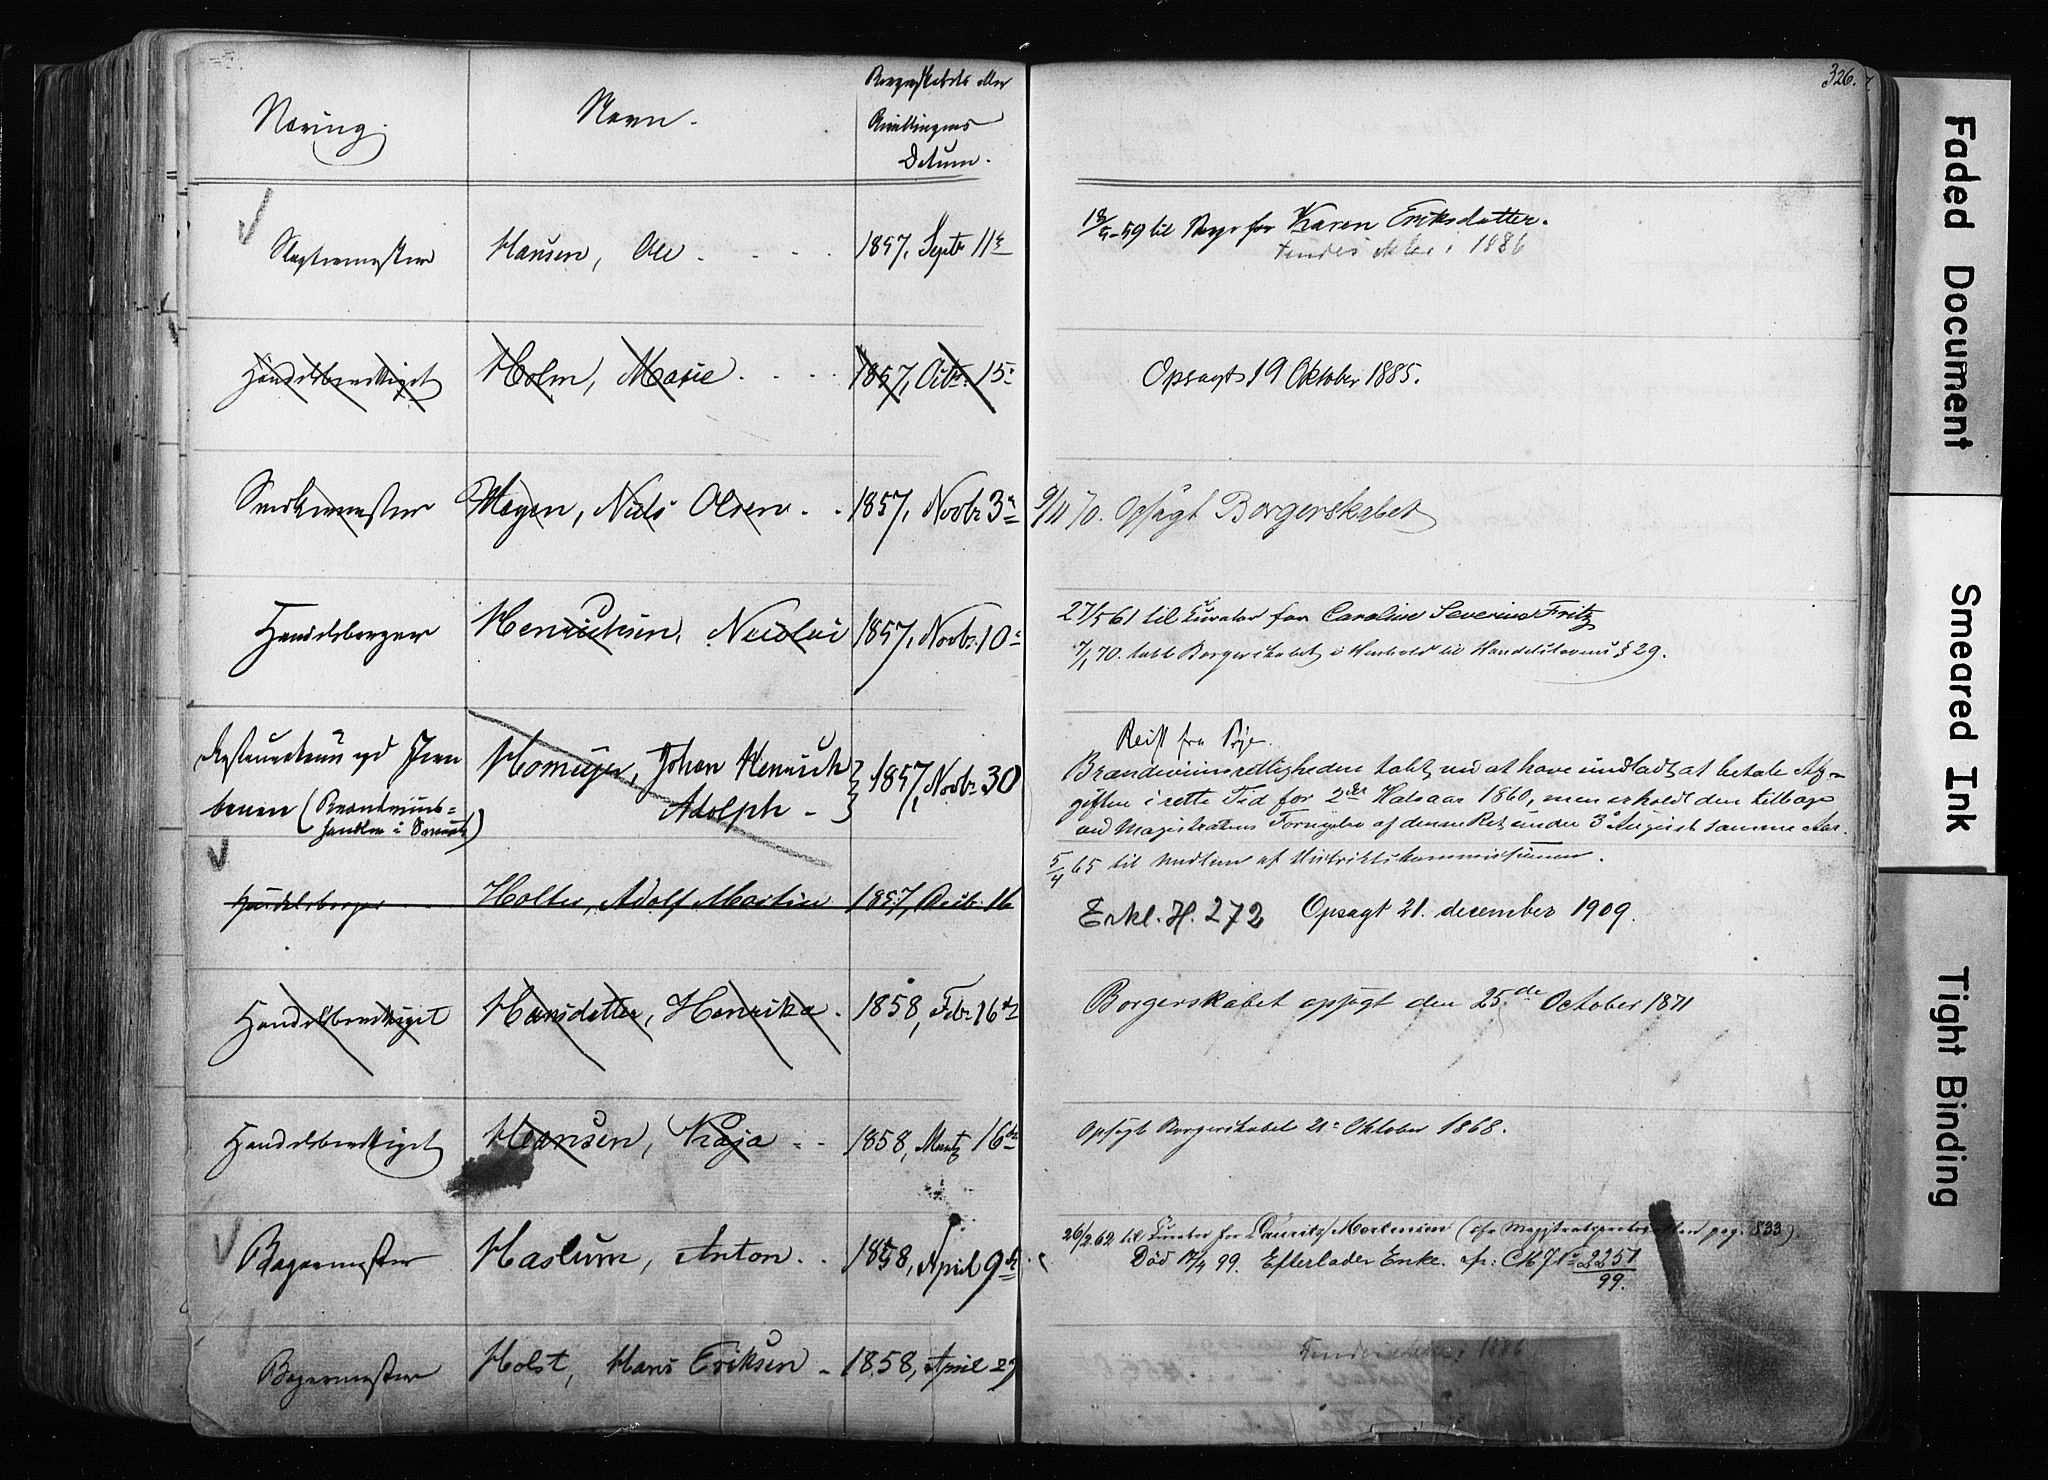 326.
Næring. Navn. Borgerskabets eller
Bevillingens
Datum.
Slagtermester Hansen, Ole 1857, Septr 11te 18/5-59 til Værge for Karen Eriksdatter.
Findes ikke i 1886
Handelsberettiget Holm, Marie 1857, Octbr 15de Opsagt 19 Oktober 1885.
Smedkemester Hagen, Niels Olsen 1857, Novbr 3die 9/11 70. Opsagt Borgerskabet
Handelsborger Henriksen, Nicolai 1857, Novbr 10de 27/5 61 til Curator for Caroline Severine Fritz
7/1 70. tabt Borgerskabet i Henhold til Handelslovens § 29.
Reist fra Bye.
Johan Henrich
Adolph 1857, Novbr 30 Brændeviinsrettigheden tabt ved at have undladt at betale Af-
giften i rette Tid for 2det Halvaar 1860, men erholdt den tilbage
ved Magistratens Fornyelse af denne Ret under 3de August samme Aar.
5/4 65 til Medlem af Districtskommissionen.
Handelsborger Holter, Adolf Martin 1857, Decbr 16 Erkl. H. 272 Opsagt 21. december 1909.
Handelsberettiget Hansdatter, Henrika 1858, Febr 16de Borgerskabet opsagt den 25de October 1871
Handelsberettiget Hansen, Kaja 1858, Martz 16de Opsagt Borgerskabet 21de Oktober 1868.
Bagermester Haslum, Anton 1858, April 9de 26/2 62 til Curator for (cfr Magistratsprotocollen pag. 833).
Død 17/4 99. Efterlader Enke. cfr: No 2251/99.
Bagermester Holst, Hans Eriksen 1858, April 27 Findes ikke i 1886
Faded Document
Smeared Ink
Tight Binding